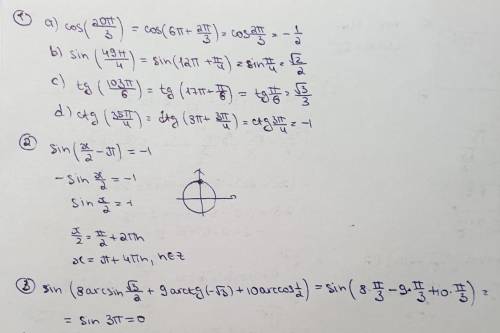 ① a) cos(20π/3) = cos(6π+2π/3) = cos 2π/3 = -1/2
b) sin(49π/4) = sin(12π+π/4) = sin π/4 = √2/2
c) tg(103π/6) = tg(17π+π/6) = tg π/6 = √3/3
d) ctg(35π/4) = ctg(8π+3π/4) = ctg 3π/4 = -1
②
sin(x/2 - π) = -1
- sin x/2 = -1
sin x/2 = 1
x/2 = π/2 + 2πn
x = π + 4πn, n∈Z
③ sin(8arcsin √3/2 + 9arctg(-√3) + 10arccos 1/2) = sin(8·π/3 - 9·π/3 + 10·π/3) =
= sin 3π = 0